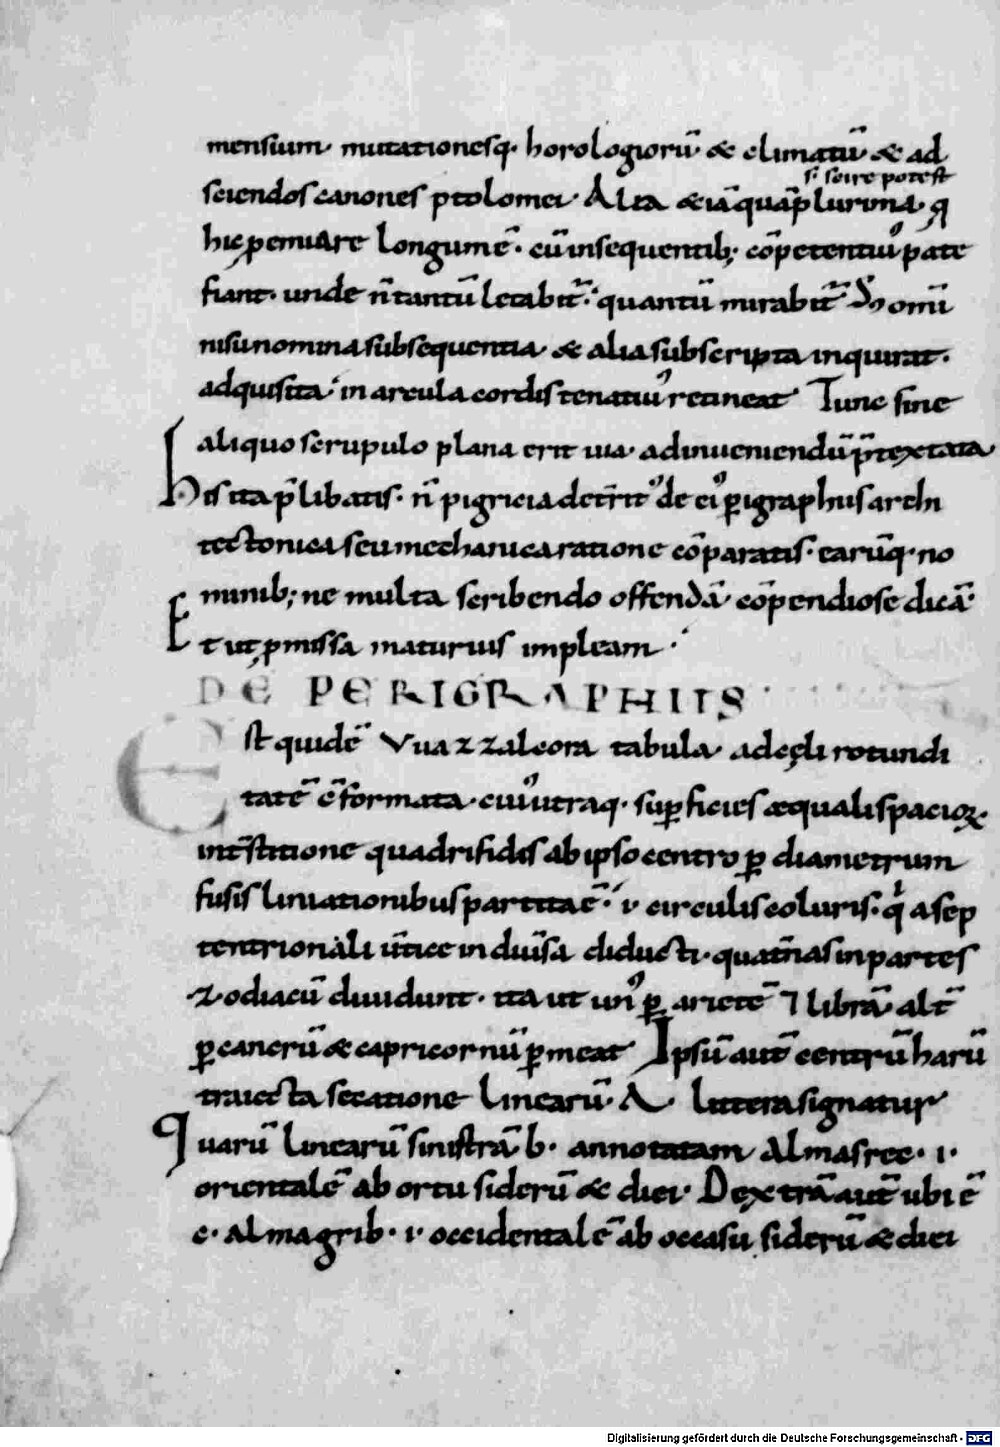 mensium. mutationesq; horologiorū. & climatū. & ad
si scire potest
sciendos canones ptolomei. Alia &iā quāplurima. q̨
hic p̨eniare longum ē. cū insequentib; cōpetentiu᷒ pate
fiant. unde ñ tantū letabit̄. quantū mirabit̄. Domū
nisunomina subsequentia. & alia subscripta inquirat.
adquisita. in arcula cordis tenatiu᷒ retineat. Tunc sine
aliquo scrupulo plana erit uia. adinueniendū p̄textata
His ita p̄libatis. ñ pigricia detrit᷒ de ei᷒ perigraphiis archi
tectonica seu mechanica ratione cōparatis. earūq; no
minib; ne multa scribendo offendā. cōpendiose dicā.
Et ut p̨missa maturius impleam.
DE PERIGRAPHIIS
Est quidē Vuazzalcora tabula. ad ęc̨li rotundi
tatē c̄formata. cui᷒ utraq; sup̱ficies æquali spacioꝝ
int̄stitione quadrifidis ab ipso centro ꝑ diametrum
fusis liniationibus partita ē. i. circulis coluris. q̇ a sep
tentrionali ūtice in diuīsa diducti. quat̄nas in partes
zodiacū diuidunt. ita ut un᷒ ꝑ arietē ⁊ librā. alt̄
ꝑ cancrū & capricornū ꝑmeat. Ipsū aut̄ centrū harū
traiecta secatione linearū. A. littera signatur
Quarū linearū sinistrā b. annotatam almasrec. i.
orientalē ab ortu siderū & diei. Dextrā aut̄ ubi ē
c. almagrib. i. occidentalē ab occasu siderū & diei
Digitalisierung gefördert durch die Deutsche Forschungsgemeinschaft - DFG